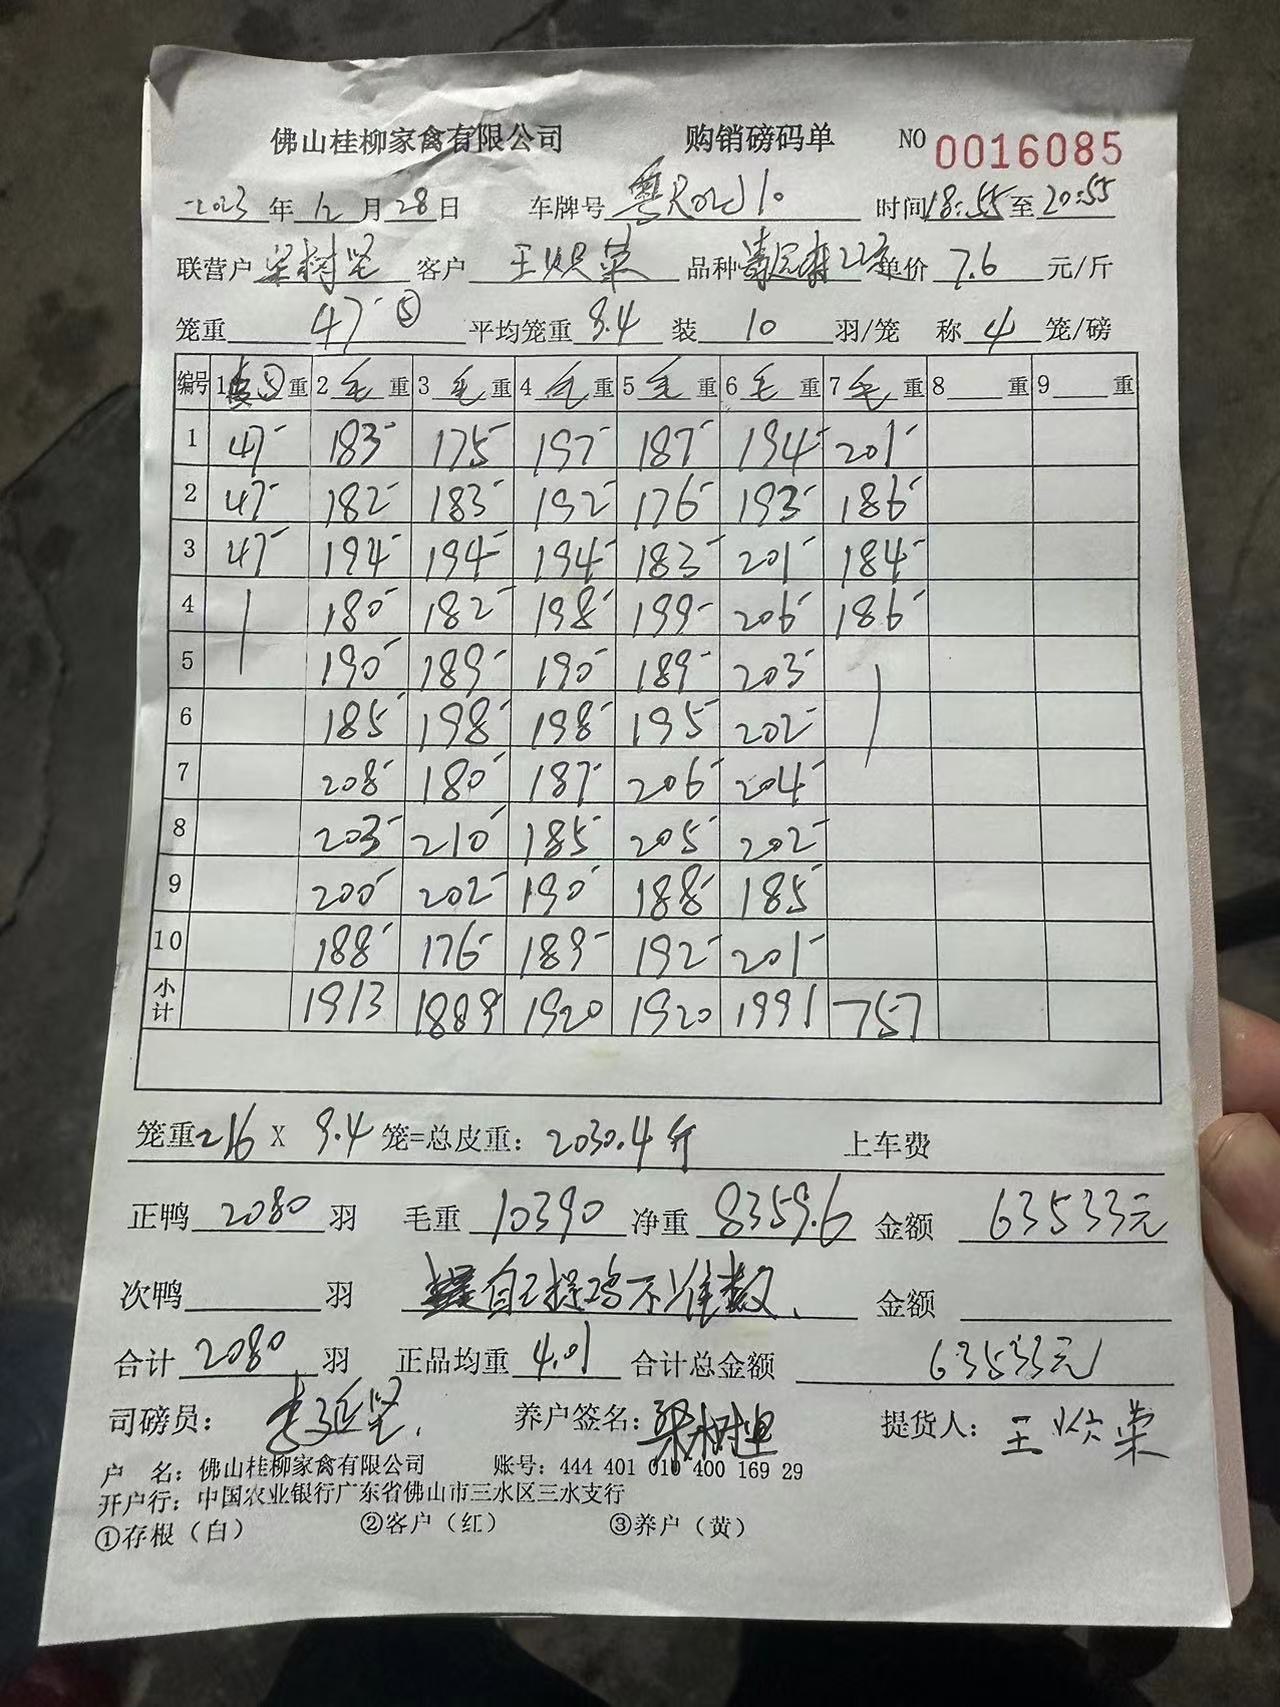 佛山桂柳家禽有限公司 购销磅码单 NO 0016085
2023年12月28日 车牌号 粤R 时间18:55至20:55
联营户 梁树坚 客户 王焕荣 品种 单价 7.6 元/斤
笼重 47 ⑤ 平均笼重 9.4 装 10 羽/笼 称 4 笼/磅
编号 1 皮⑤ 重 2 毛 重 3 毛 重 4 毛 重 5 毛 重 6 毛 重 7 毛 重 8 重 9 重
1 47- 183- 175- 197- 187- 194- 201-
2 47- 182- 183- 192- 176- 193- 186-
3 47- 194- 194- 194- 183- 201- 184-
4 180- 182- 198- 199- 206- 186-
5 190- 189- 190- 189- 203-
6 185- 198- 198- 195- 202-
7 208- 180- 187- 206- 204-
8 203- 210- 185- 205- 202-
9 200- 202- 190- 188- 185-
10 188- 176- 189- 192- 201-
小计 1913 1889 1920 1920 1991 757
笼重 216 X 9.4 笼=总皮重: 2030.4斤 上车费
正鸭 2080 羽 毛重 10390 净重 8359.6 金额 63533元
次鸭 羽 自己捉鸡不准数、 金额
合计 2080 羽 正品均重 4.01 合计总金额 63533元
司磅员: 养户签名: 梁树坚 提货人: 王焕荣
户 名: 佛山桂柳家禽有限公司 账号: 444 401 010 400 169 29
开户行: 中国农业银行广东省佛山市三水区三水支行
①存根(白) ②客户(红) ③养户(黄)